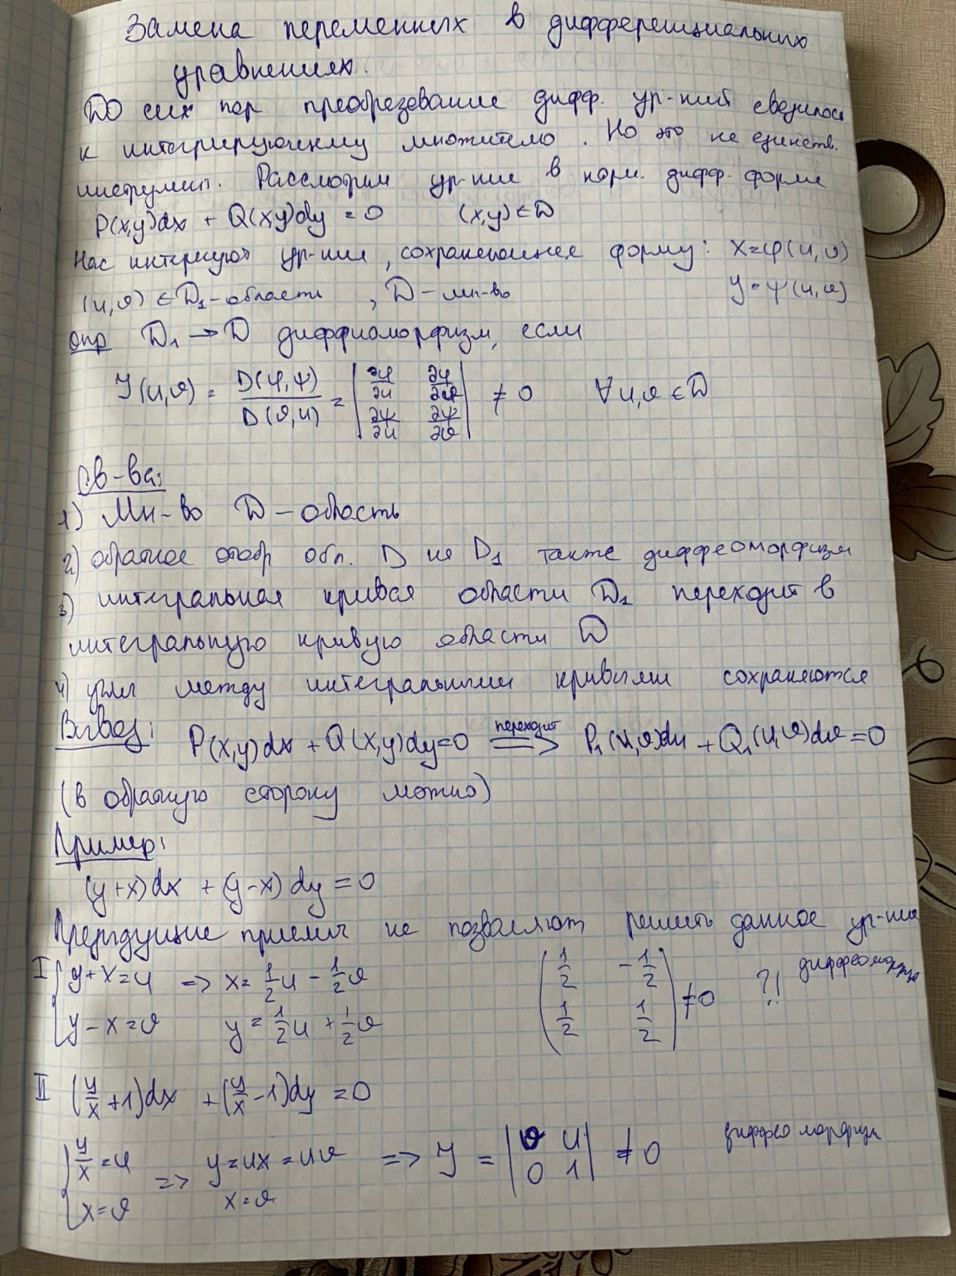 Замена переменных в дифференциальных
уравнениях.
До сих пор преобразование дифф. ур-ний сводилось
к интегрирующему множителю. Но это не единств.
инструмент. Рассмотрим ур-ние в норм. дифф. форме
P(x,y)dx + Q(x,y)dy = 0 (x,y)∈D
Нас интересуют ур-ния, сохраняющее форму: x=φ(u,v)
(u,v)∈D₁-области, D-мн-во y=ψ(u,v)
опр D₁→D диффиоморфизм, если
J(u,v) = D(φ,ψ)/D(v,u) = | ∂φ/∂u ∂φ/∂v ; ∂ψ/∂u ∂ψ/∂v | ≠ 0 ∀u,v∈D
Св-ва:
1) Мн-во D – область
2) обратное отобр обл. D на D₁ также диффеоморфизм
3) интегральная кривая области D₁ переходит в
интегральную кривую области D
4) углы между интегральными кривыми сохраняются
Вывод: P(x,y)dx + Q(x,y)dy=0 переходит ⇒ P₁(u,v)du + Q₁(u,v)dv=0
(в обратную сторону можно)
Пример:
(y+x)dx + (y-x)dy = 0
Предыдущие приемы не позволяют решить данное ур-ние
I { y+x=u ⇒ x=1/2u - 1/2v ( 1/2 -1/2 ; 1/2 1/2 ) ≠0 ?! диффеоморфизм
y-x=v y=1/2u + 1/2v
II (y/x+1)dx + (y/x-1)dy = 0
{ y/x=u ⇒ y=ux=uv ⇒ J = | v u ; 0 1 | ≠ 0 диффеоморфизм
x=v x=v